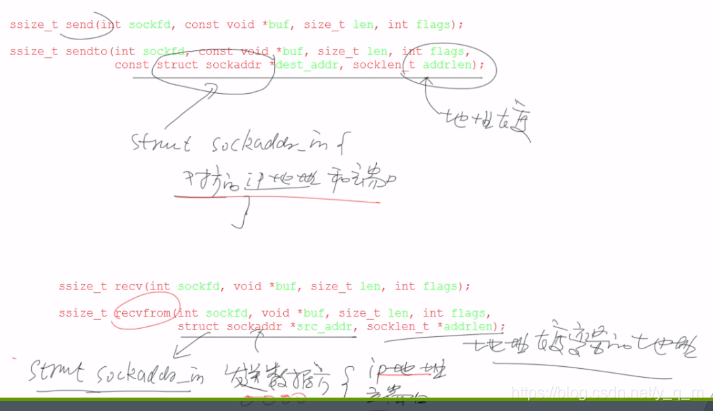 ssize_t send(int sockfd, const void *buf, size_t len, int flags);
ssize_t sendto(int sockfd, const void *buf, size_t len, int flags,
const struct sockaddr *dest_addr, socklen_t addrlen);
地址长度
struct sockaddr_in {
对方的ip地址和端口
}
ssize_t recv(int sockfd, void *buf, size_t len, int flags);
ssize_t recvfrom(int sockfd, void *buf, size_t len, int flags,
struct sockaddr *src_addr, socklen_t *addrlen);
地址长度变量的地址
struct sockaddr_in 发送数据方 { ip地址
端口
https://blog.csdn.net/y_n_m